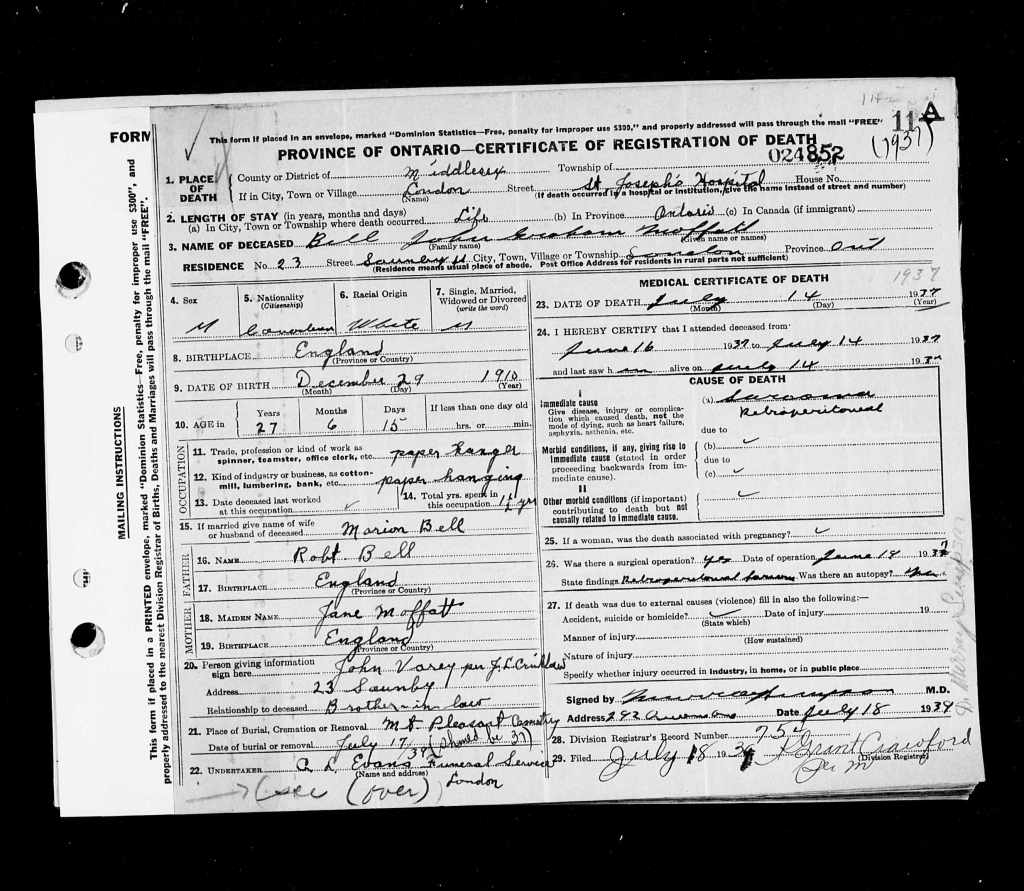 114
11 A
This form if placed in an envelope, marked "Dominion Statistics—Free, penalty for improper use $300," and properly addressed will pass through the mail "FREE"
PROVINCE OF ONTARIO—CERTIFICATE OF REGISTRATION OF DEATH
024852 (1937)
1. PLACE OF DEATH County or District of Middlesex Township of
If in City, Town or Village London (Name) Street St. Joseph's Hospital House No.
(If death occurred in a hospital or institution, give the name instead of street and number)
2. LENGTH OF STAY (in years, months and days)
(a) In City, Town or Township where death occurred Life (b) In Province Ontario (c) In Canada (if immigrant)
3. NAME OF DECEASED Bell John Graham Moffatt
(Family name) (Given name or names)
RESIDENCE No. 23 Street Saunby St City, Town, Village or Township London Province Ont
(Residence means usual place of abode. Post Office Address for residents in rural parts not sufficient)
4. Sex 5. Nationality (Citizenship) 6. Racial Origin 7. Single, Married, Widowed or Divorced (write the word)
M Canadian White M
8. BIRTHPLACE England
(Province or Country)
9. DATE OF BIRTH December 29 1910
(Month) (Day) (Year)
10. AGE in Years Months Days If less than one day old
27 6 15 hrs. or min.
OCCUPATION
11. Trade, profession or kind of work as spinner, teamster, office clerk, etc. paper hanger
12. Kind of industry or business, as cotton-mill, lumbering, bank, etc. paper hanging
13. Date deceased last worked at this occupation
14. Total yrs. spent in this occupation 1½ yrs
15. If married give name of wife or husband of deceased Marion Bell
FATHER
16. NAME Robt Bell
17. BIRTHPLACE England
(Province or Country)
MOTHER
18. MAIDEN NAME Jane Moffatt
19. BIRTHPLACE England
(Province or Country)
20. Person giving information sign here John Varey per J.L. Crinklaw
Address 23 Saunby
Relationship to deceased Brother-in law
21. Place of Burial, Cremation or Removal Mt Pleasant Cemetry
Date of burial or removal July 17, 39 (should be 37)
22. UNDERTAKER A L Evans Funeral Service
(Name and address) London
(see (over)
MEDICAL CERTIFICATE OF DEATH
1937
23. DATE OF DEATH July 14 1937
(Month) (Day) (Year)
24. I HEREBY CERTIFY that I attended deceased from
June 16 1937 to July 14 1937
and last saw him alive on July 14 1937
CAUSE OF DEATH
I
Immediate cause
Give disease, injury or complication which caused death, not the mode of dying, such as heart failure, asphyxia, asthenia, etc.
(a) Sarcoma
Retroperitoneal
due to
Morbid conditions, if any, giving rise to immediate cause (stated in order proceeding backwards from immediate cause).
(b)
due to
(c)
II
Other morbid conditions (if important) contributing to death but not causally related to immediate cause.
25. If a woman, was the death associated with pregnancy?
26. Was there a surgical operation? yes Date of operation June 19 1937
State findings Retroperitoneal Sarcoma Was there an autopsy?
27. If death was due to external causes (violence) fill in also the following:—
Accident, suicide or homicide? Date of injury 19
(State which)
Manner of injury
(How sustained)
Nature of injury
Specify whether injury occurred in industry, in home, or in public place
Signed by M.D.
Address 292 Date July 18 1939
28. Division Registrar's Record Number 752
29. Filed July 18 1939 J Grant Crawford
(Division Registrar)
Per M
FORM
MAILING INSTRUCTIONS
This form if placed in a PRINTED envelope, marked "Dominion Statistics—Free, penalty for improper use $300", and properly addressed to the nearest Division Registrar of Births, Deaths and Marriages will pass through the mail "FREE".